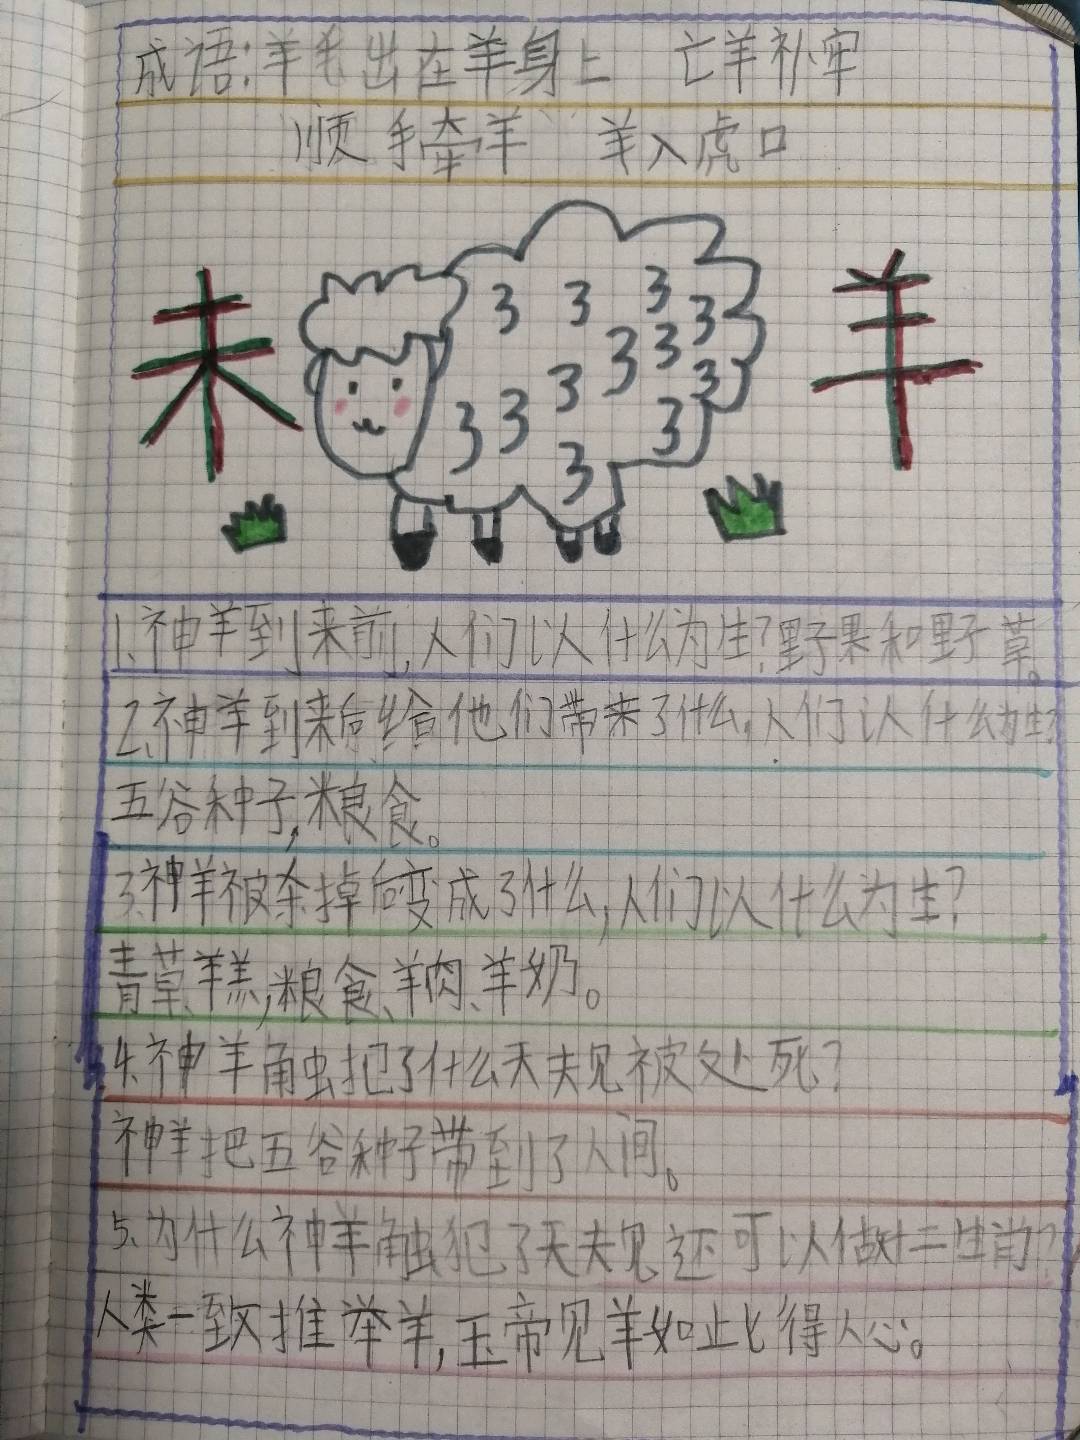 成语:羊毛出在羊身上 亡羊补牢
顺手牵羊 羊入虎口
未
羊
3 3 3 3 3 3 3 3 3 3 3 3 3
1.神羊到来前,人们以什么为生?野果和野草。
2.神羊到来后给他们带来了什么,人们以什么为生?
五谷种子,粮食。
3.神羊被杀掉后变成了什么,人们以什么为生?
青草、羊羔,粮食、羊肉、羊奶。
4.神羊触犯了什么天夫见被处死?
神羊把五谷种子带到了人间。
5.为什么神羊触犯了天夫见还可以做十二生肖?
人类一致推举羊,玉帝见羊如此得人心。